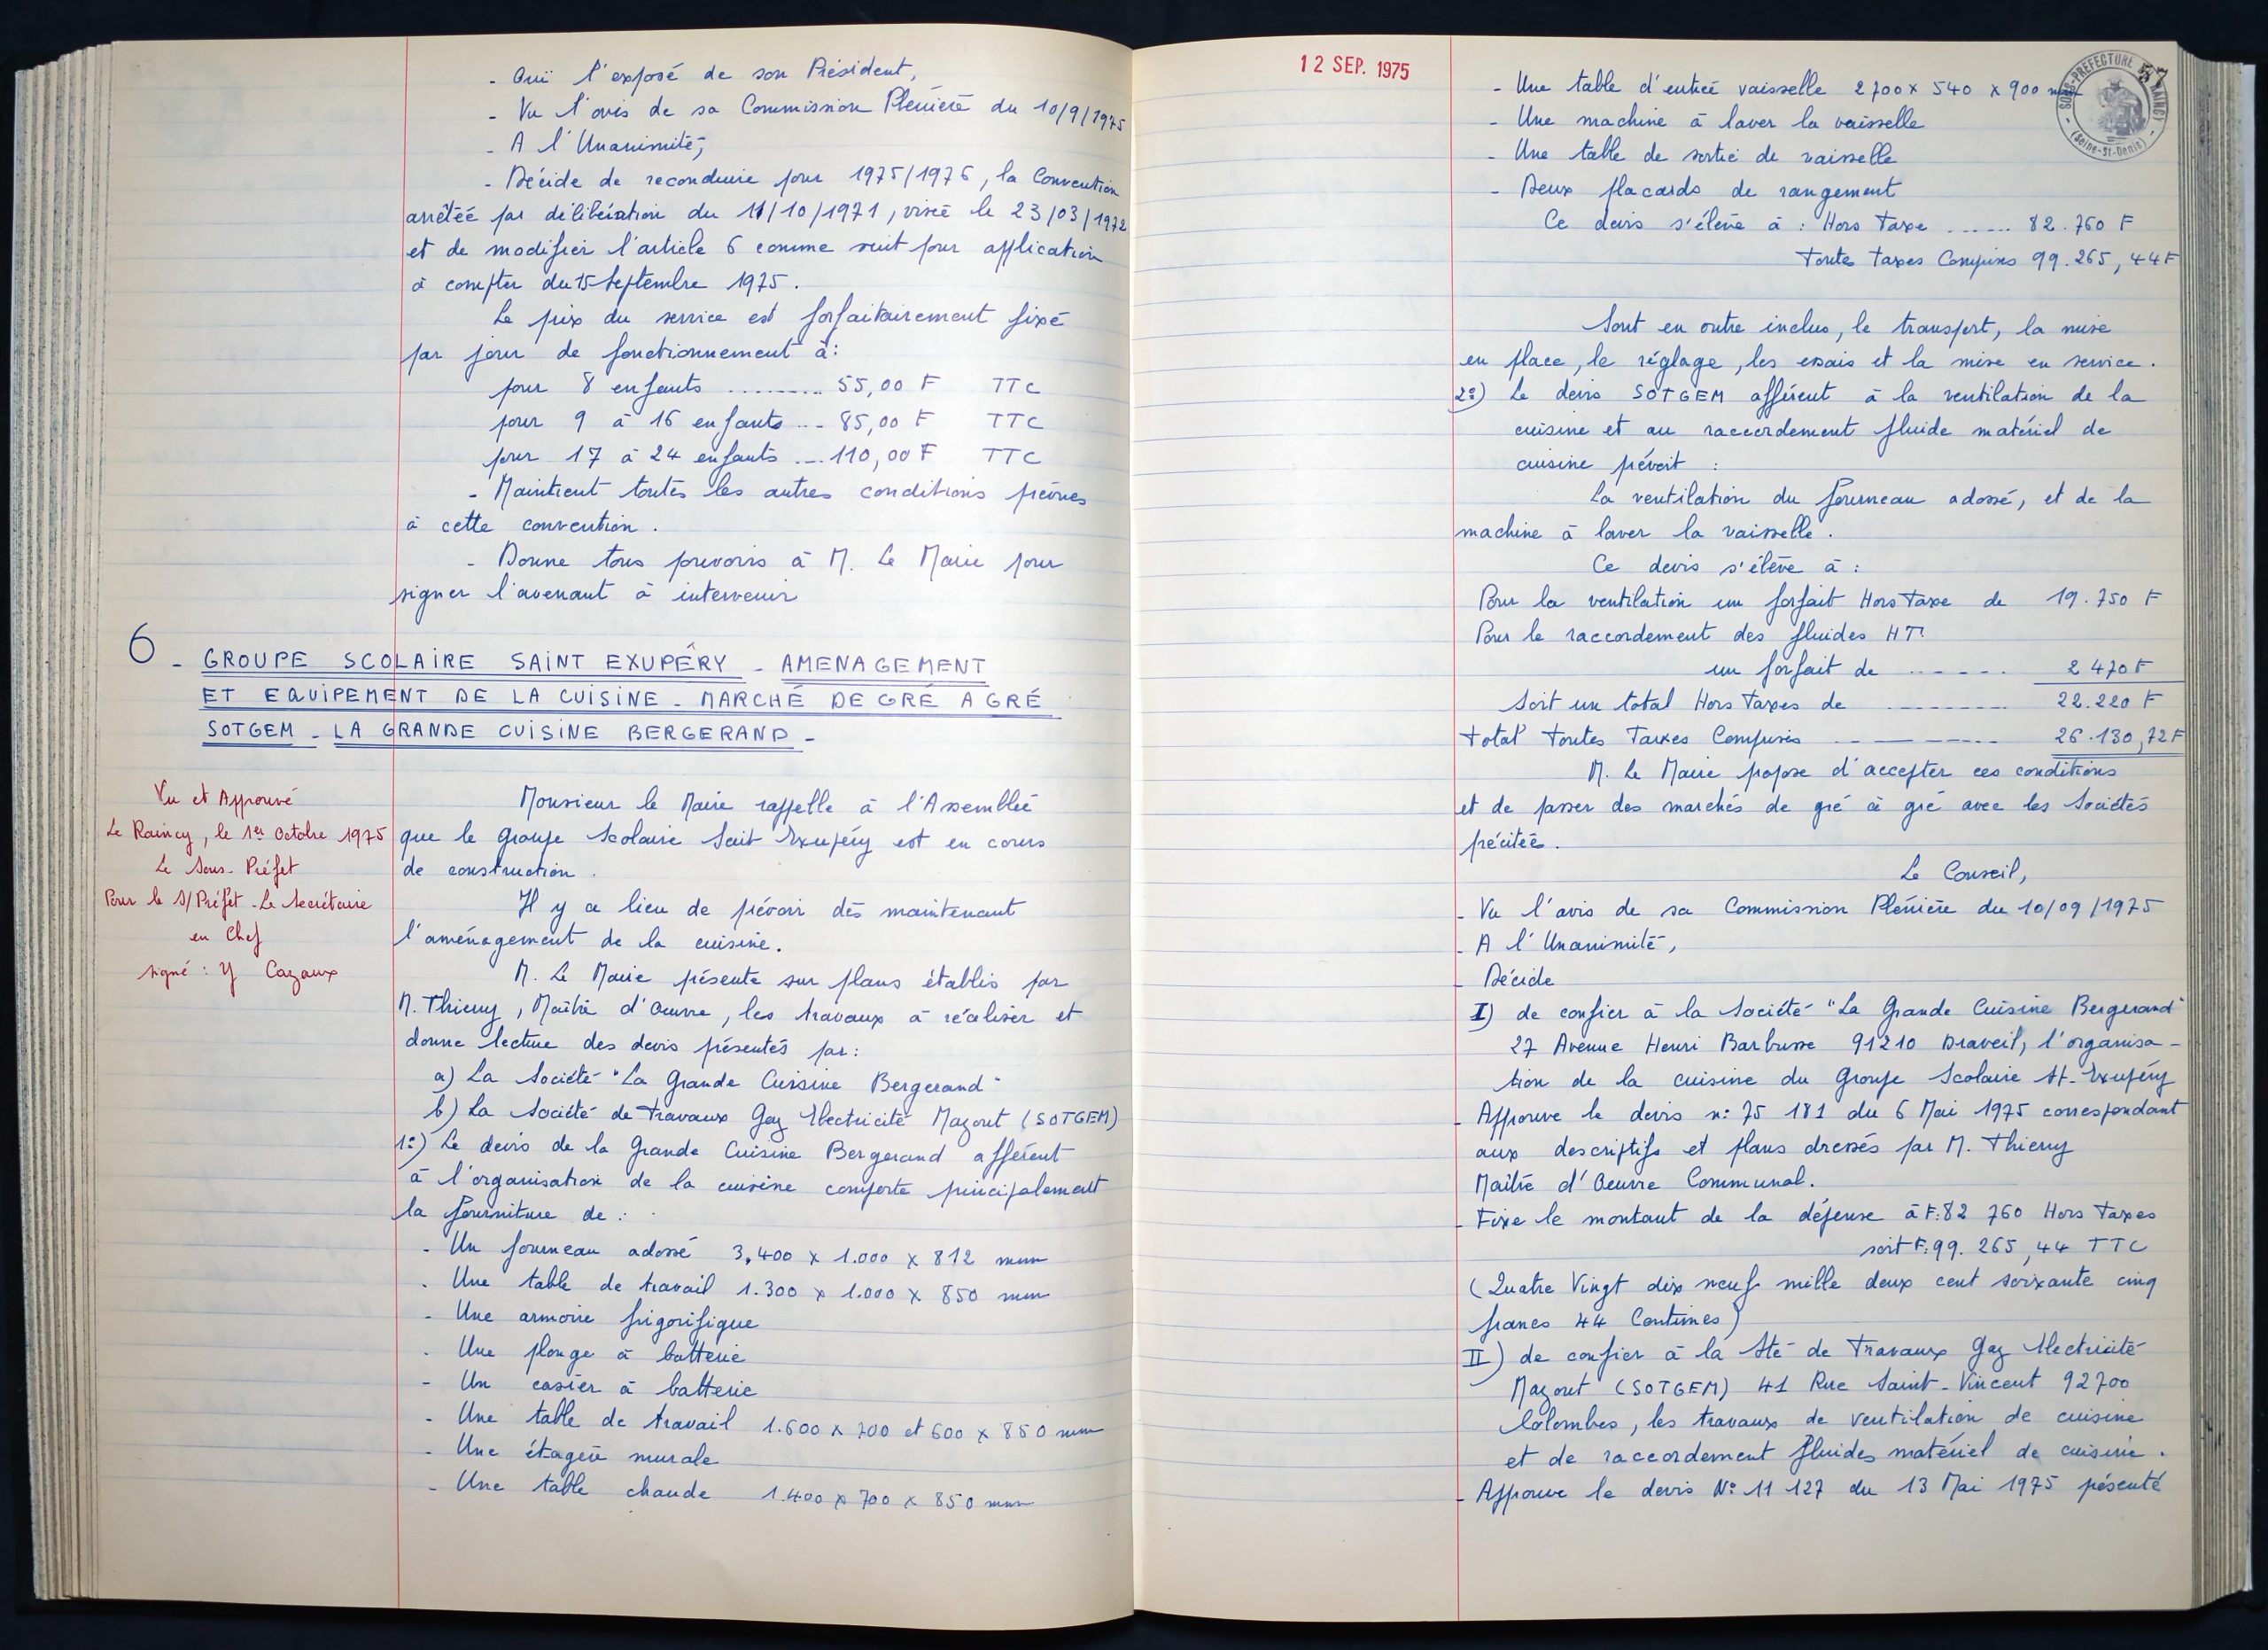 - Ouï l'exposé de son Président,
- Vu l'avis de sa Commission Plénière du 10/9/1975
- A l'Unanimité,
- Décide de reconduire pour 1975/1976, la Convention
arrêtée par délibération du 11/10/1971, visée le 23/03/1972
et de modifier l'article 6 comme suit pour application
à compter du 15 Septembre 1975.
Le prix du service est forfaitairement fixé
par jour de fonctionnement à :
pour 8 enfants ......... 55,00 F TTC
pour 9 à 16 enfants ... 85,00 F TTC
pour 17 à 24 enfants ... 110,00 F TTC
- Maintient toutes les autres conditions prévues
à cette convention.
- Donne tous pouvoirs à M. Le Maire pour
signer l'avenant à intervenir
6 - GROUPE SCOLAIRE SAINT EXUPÉRY - AMENAGEMENT
ET EQUIPEMENT DE LA CUISINE - MARCHÉ DE GRÉ A GRÉ
SOTGEM - LA GRANDE CUISINE BERGERAND -
Vu et Approuvé
Le Raincy, le 1er Octobre 1975
Le Sous-Préfet
Pour le S/Préfet - Le Secrétaire
en Chef
signé : Y Cazaux
Monsieur le Maire rappelle à l'Assemblée
que le Groupe Scolaire Saint Exupéry est en cours
de construction.
Il y a lieu de prévoir dès maintenant
l'aménagement de la cuisine.
M. Le Maire présente sur plans établis par
M. Thierry, Maître d'Œuvre, les travaux à réaliser et
donne lecture des devis présentés par :
a) La Société "La Grande Cuisine Bergerand"
b) La Société de Travaux Gaz Electricité Mazout (SOTGEM)
1°) Le devis de la Grande Cuisine Bergerand afférent
à l'organisation de la cuisine comporte principalement
la fourniture de :
- Un fourneau adossé 3.400 x 1.000 x 812 mm
- Une table de travail 1.300 x 1.000 x 850 mm
- Une armoire frigorifique
- Une plonge à batterie
- Un casier à batterie
- Une table de travail 1.600 x 700 et 600 x 850 mm
- Une étagère murale
- Une table chaude 1.400 x 700 x 850 mm
12 SEP. 1975
SOUS-PREFECTURE DU RAINCY
- (Seine-St-Denis) -
- Une table d'entrée vaisselle 2700 x 540 x 900 mm
- Une machine à laver la vaisselle
- Une table de sortie de vaisselle
- Deux placards de rangement
Ce devis s'élève à : Hors Taxe ...... 82.760 F
Toutes Taxes Comprises 99.265,44 F
Sont en outre inclus, le transport, la mise
en place, le réglage, les essais et la mise en service.
2°) Le devis SOTGEM afférent à la ventilation de la
cuisine et au raccordement fluide matériel de
cuisine prévoit :
La ventilation du fourneau adossé, et de la
machine à laver la vaisselle.
Ce devis s'élève à :
Pour la ventilation un forfait Hors Taxe de 19.750 F
Pour le raccordement des fluides HT
un forfait de ...... 2 470 F
Soit un total Hors Taxes de ......... 22.220 F
Total Toutes Taxes Comprises ......... 26.130,72 F
M. Le Maire propose d'accepter ces conditions
et de passer des marchés de gré à gré avec les Sociétés
précitées.
Le Conseil,
- Vu l'avis de sa Commission Plénière du 10/09/1975
- A l'Unanimité,
- Décide
I) de confier à la Société "La Grande Cuisine Bergerand"
27 Avenue Henri Barbusse 91210 Draveil, l'organisa-
tion de la cuisine du Groupe Scolaire St-Exupéry
- Approuve le devis n° 75 181 du 6 Mai 1975 correspondant
aux descriptifs et plans dressés par M. Thierry
Maître d'Oeuvre Communal.
- Fixe le montant de la dépense à F: 82 760 Hors Taxes
soit F: 99.265,44 TTC
(Quatre Vingt dix neuf mille deux cent soixante cinq
francs 44 Centimes)
II) de confier à la Sté de Travaux Gaz Electricité
Mazout (SOTGEM) 41 Rue Saint-Vincent 92700
Colombes, les travaux de ventilation de cuisine
et de raccordement fluides matériel de cuisine.
- Approuve le devis N° 11 127 du 13 Mai 1975 présenté